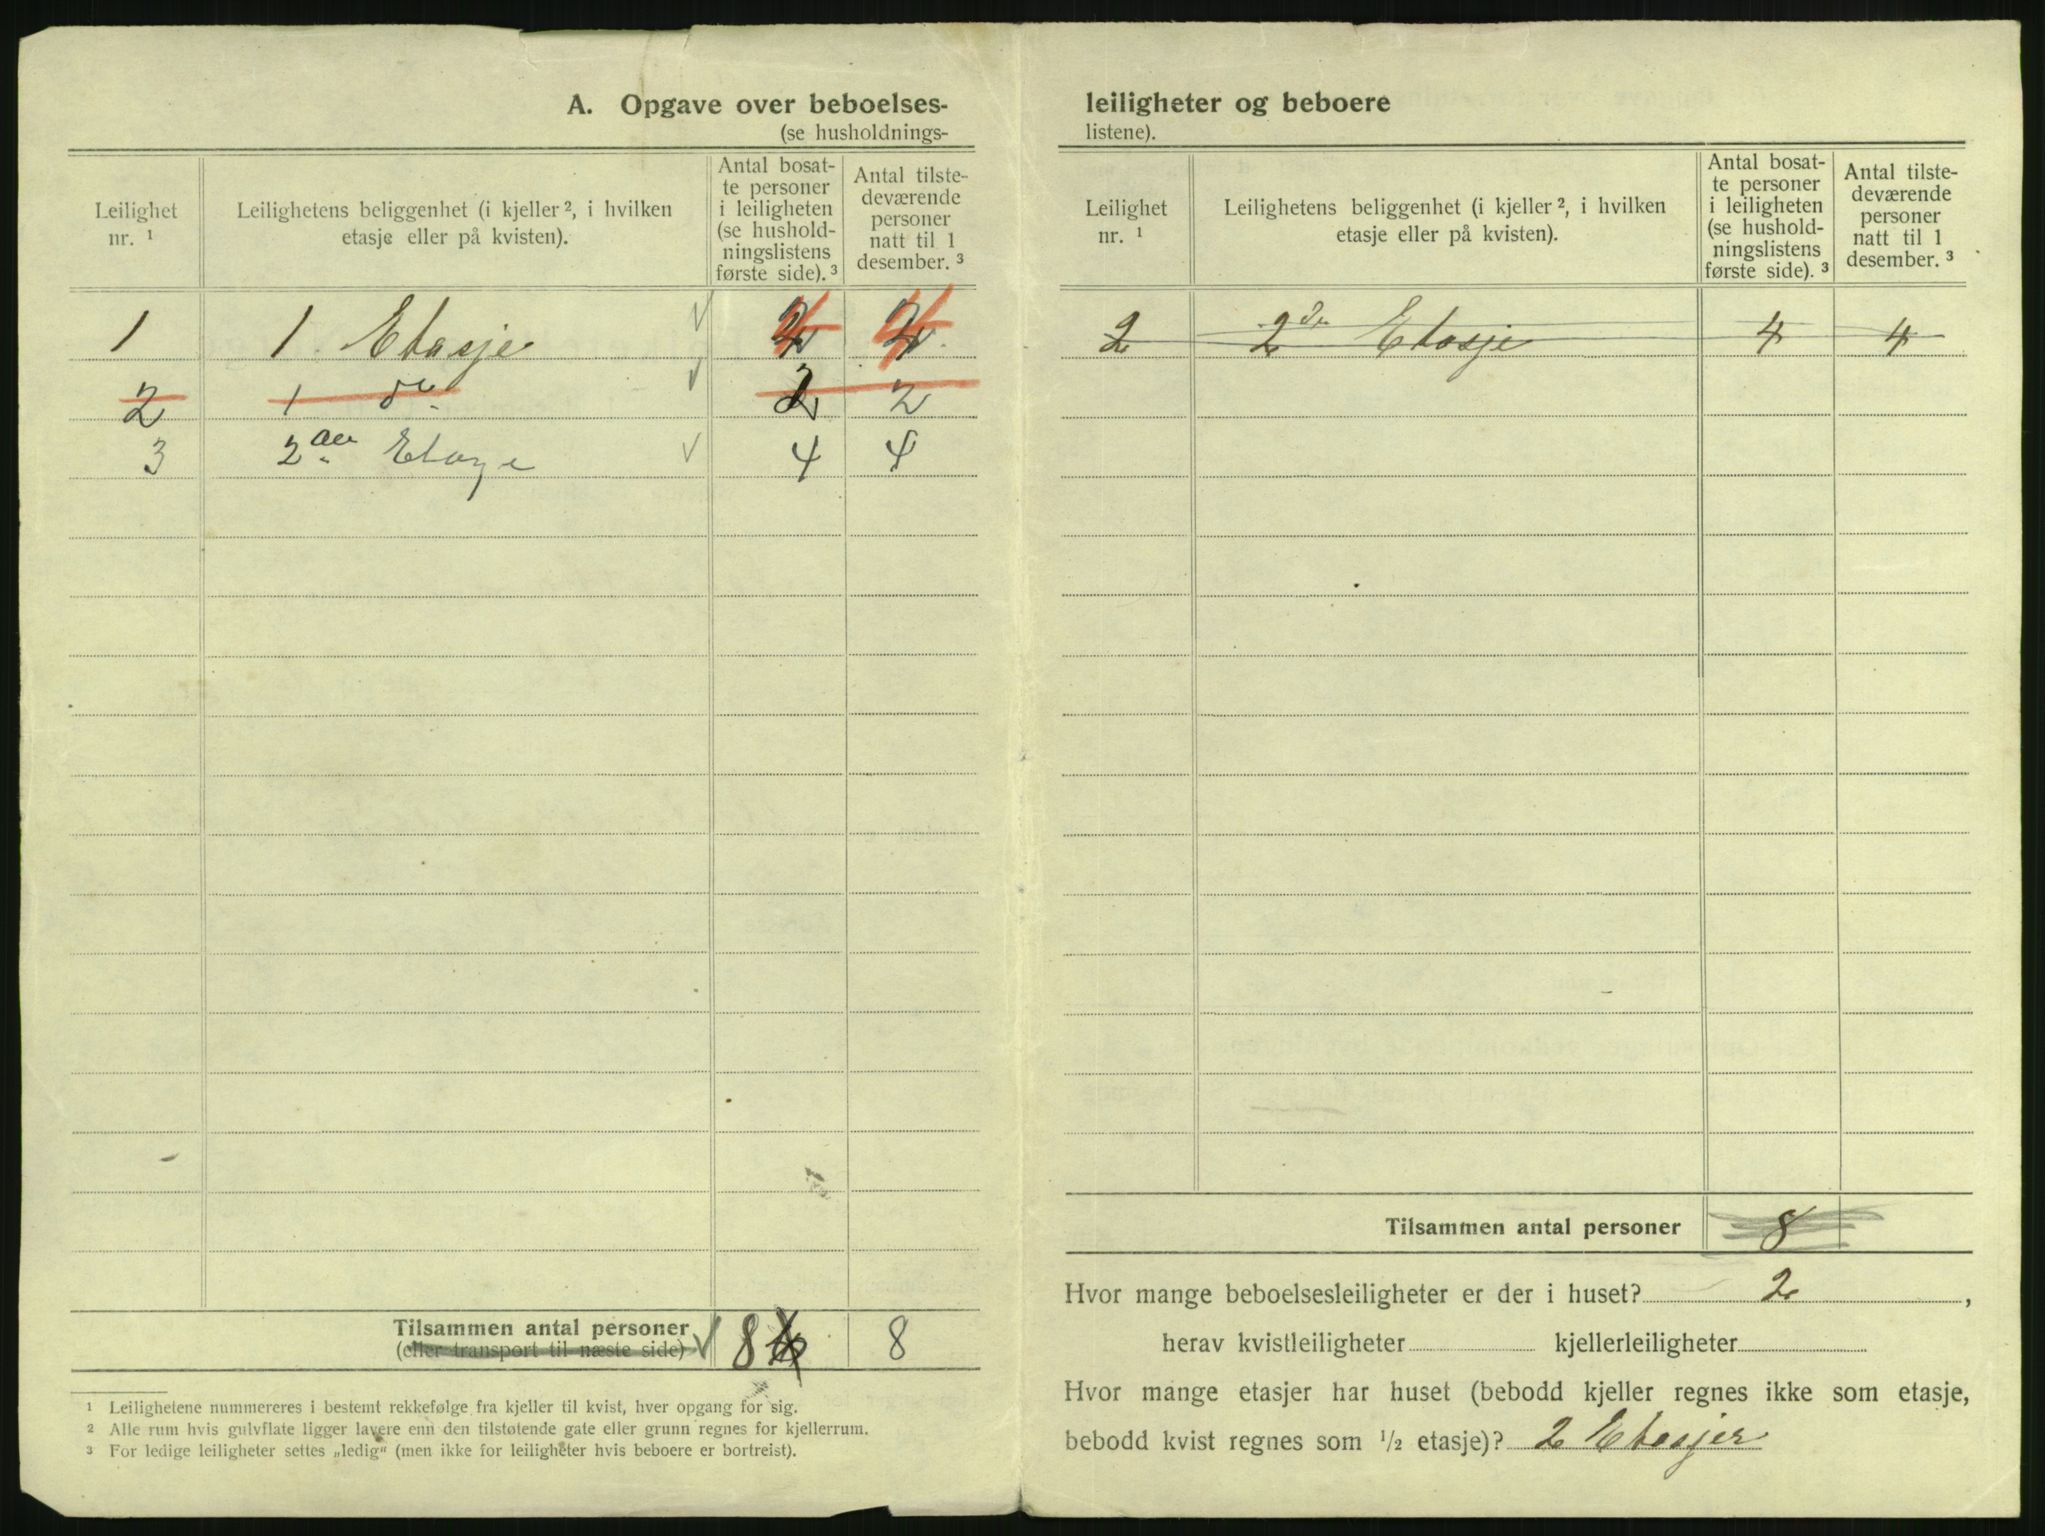 A. Opgave over beboelses-
(se husholdnings-
Leilighet
nr. 1
Leilighetens beliggenhet (i kjeller 2, i hvilken
etasje eller på kvisten).
Antal bosat-
te personer
i leiligheten
(se hushold-
ningslistens
første side). 3
Antal tilste-
deværende
personer
natt til 1
desember. 3
1 1. Etasje 4 4
2 1 do 2 2
3 2 Etage 4 4
Tilsammen antal personer 8 8
(eller transport til næste side)
1 Leilighetene nummereres i bestemt rekkefølge fra kjeller til kvist, hver opgang for sig.
2 Alle rum hvis gulvflate ligger lavere enn den tilstøtende gate eller grunn regnes for kjellerrum.
3 For ledige leiligheter settes „ledig“ (men ikke for leiligheter hvis beboere er bortreist).
leiligheter og beboere
listene).
Leilighet
nr. 1
Leilighetens beliggenhet (i kjeller 2, i hvilken
etasje eller på kvisten).
Antal bosat-
te personer
i leiligheten
(se hushold-
ningslistens
første side). 3
Antal tilste-
deværende
personer
natt til 1
desember. 3
2 2 Etasje 4 4
Tilsammen antal personer 8
Hvor mange beboelsesleiligheter er der i huset? 2,
herav kvistleiligheter kjellerleiligheter
Hvor mange etasjer har huset (bebodd kjeller regnes ikke som etasje,
bebodd kvist regnes som 1/2 etasje)? 2 Etasjer